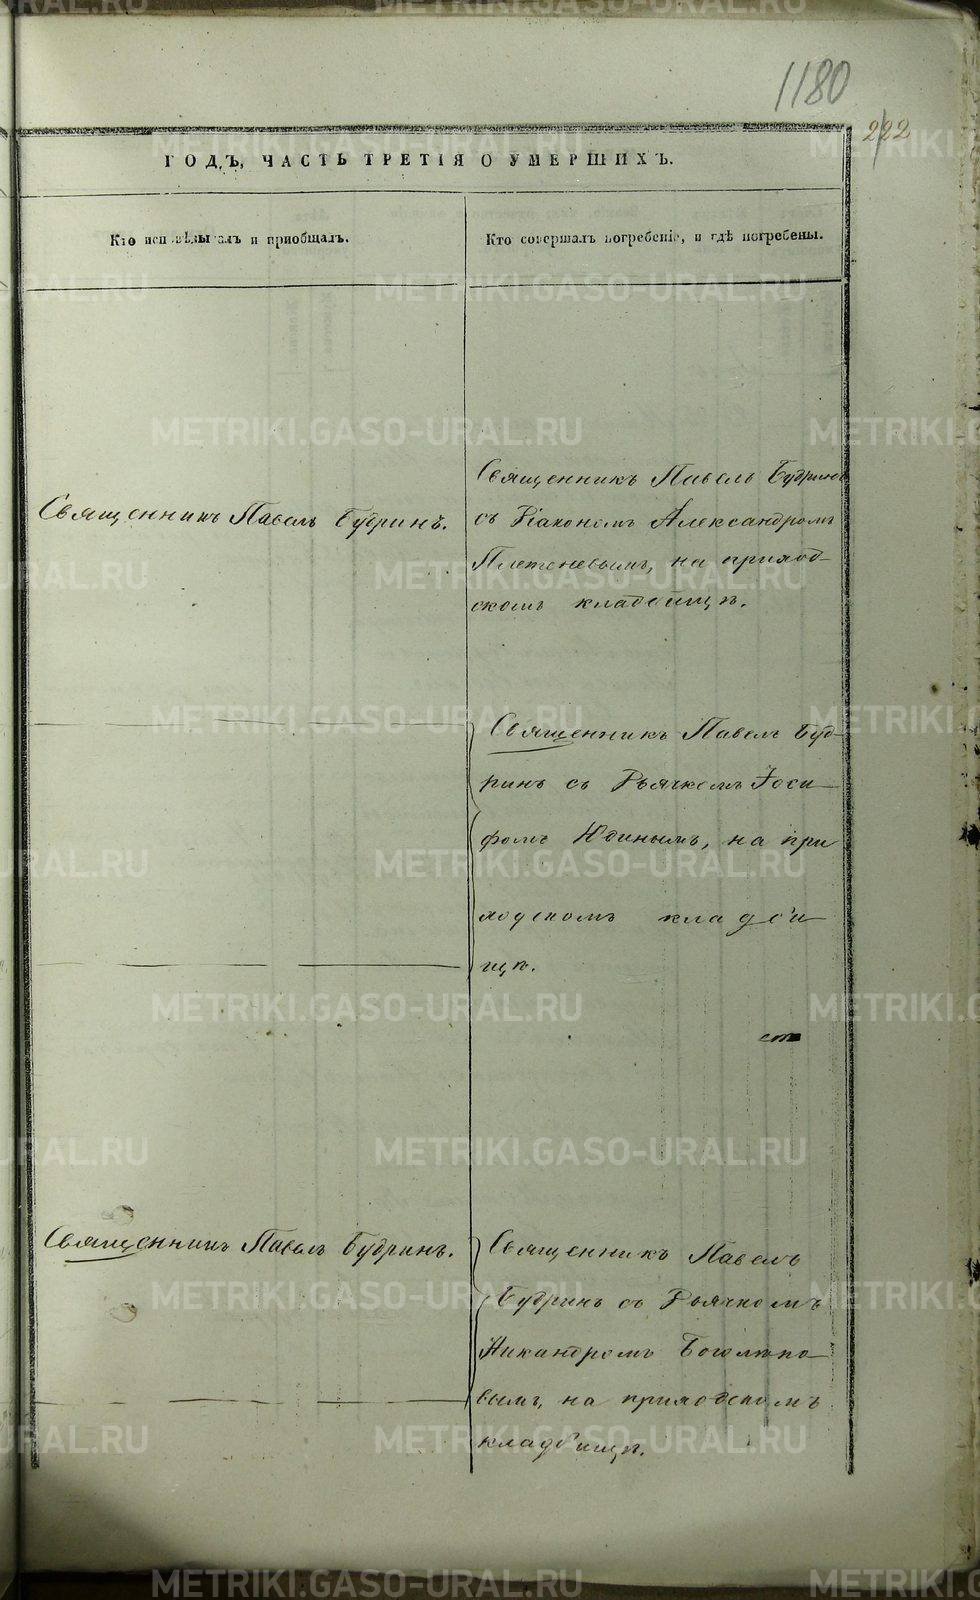 1180
222
ГОДЪ, ЧАСТЬ ТРЕТІЯ О УМЕРШИХЪ.
Кто исповѣдывалъ и пріобщалъ.
Кто совершалъ погребеніе, и гдѣ погребены.
Священникъ Павелъ Будринъ.
Священникъ Павелъ Будринъ
съ Діакономъ Александромъ
Плетеневымъ, на приход-
скомъ кладбищѣ.
Священникъ Павелъ Буд-
ринъ съ Дьячкомъ Іоси-
фомъ Юдинымъ, на при
ходскомъ кладби-
щѣ.
Священникъ Павелъ Будринъ.
Священникъ Павелъ
Будринъ съ Дьячкомъ
Никандромъ
вымъ, на приходскомъ
кладбищѣ.
METRIKI.GASO-URAL.RU